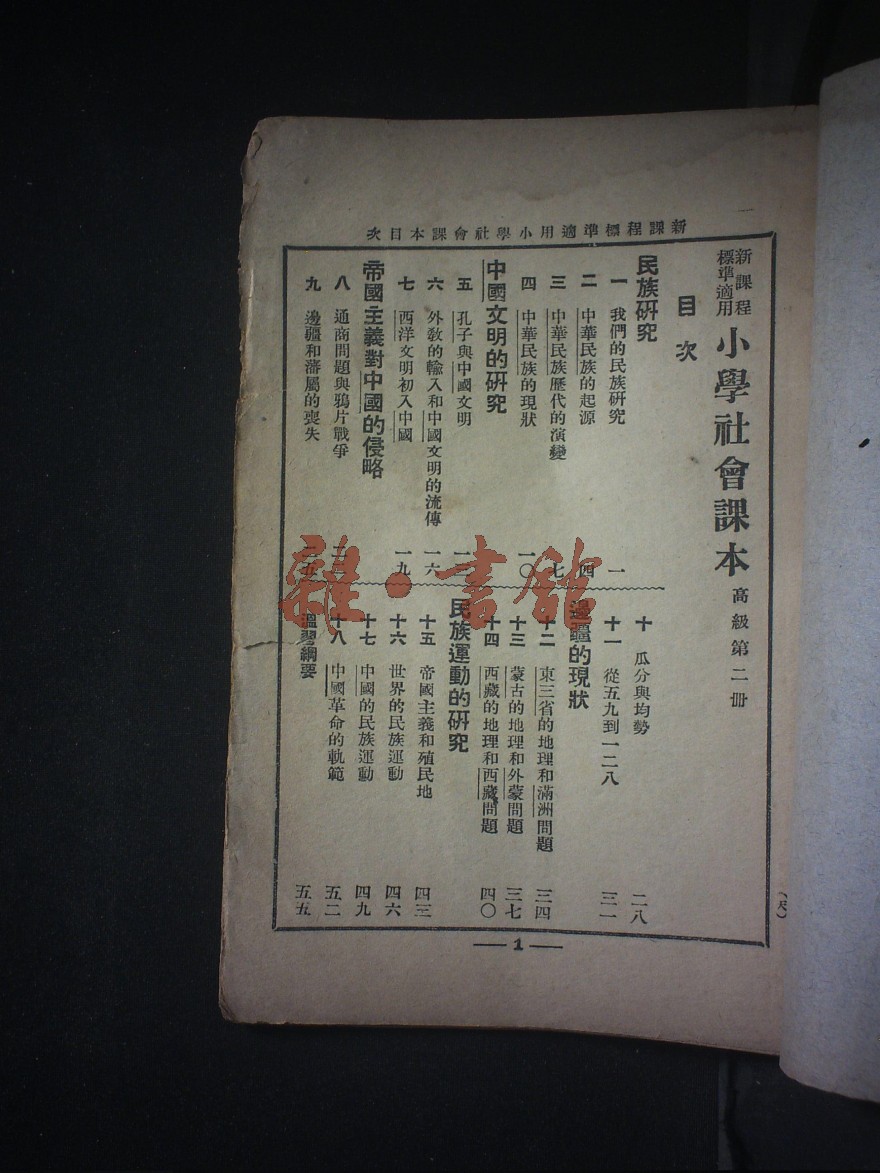 新課程標準適用小學社會課本目次
新課程標準適用 小學社會課本 高級第二册
目次
民族硏究
一 我們的民族硏究 一
二 中華民族的起源 四
三 中華民族歷代的演變 七
四 中華民族的現狀 一〇
中國文明的硏究
五 孔子與中國文明
六 外敎的輸入和中國文明的流傳 一六
七 西洋文明初入中國 一九
帝國主義對中國的侵略
八 通商問題與鴉片戰爭
九 邊疆和藩屬的喪失
十 瓜分與均勢 二八
十一 從五九到一二八 三一
邊疆的現狀
十二 東三省的地理和滿洲問題 三四
十三 蒙古的地理和外蒙問題 三七
十四 西藏的地理和西藏問題 四〇
民族運動的硏究
十五 帝國主義和殖民地 四三
十六 世界的民族運動 四六
十七 中國的民族運動 四九
十八 中國革命的軌範 五二
溫習綱要 五五
1
雜·書館